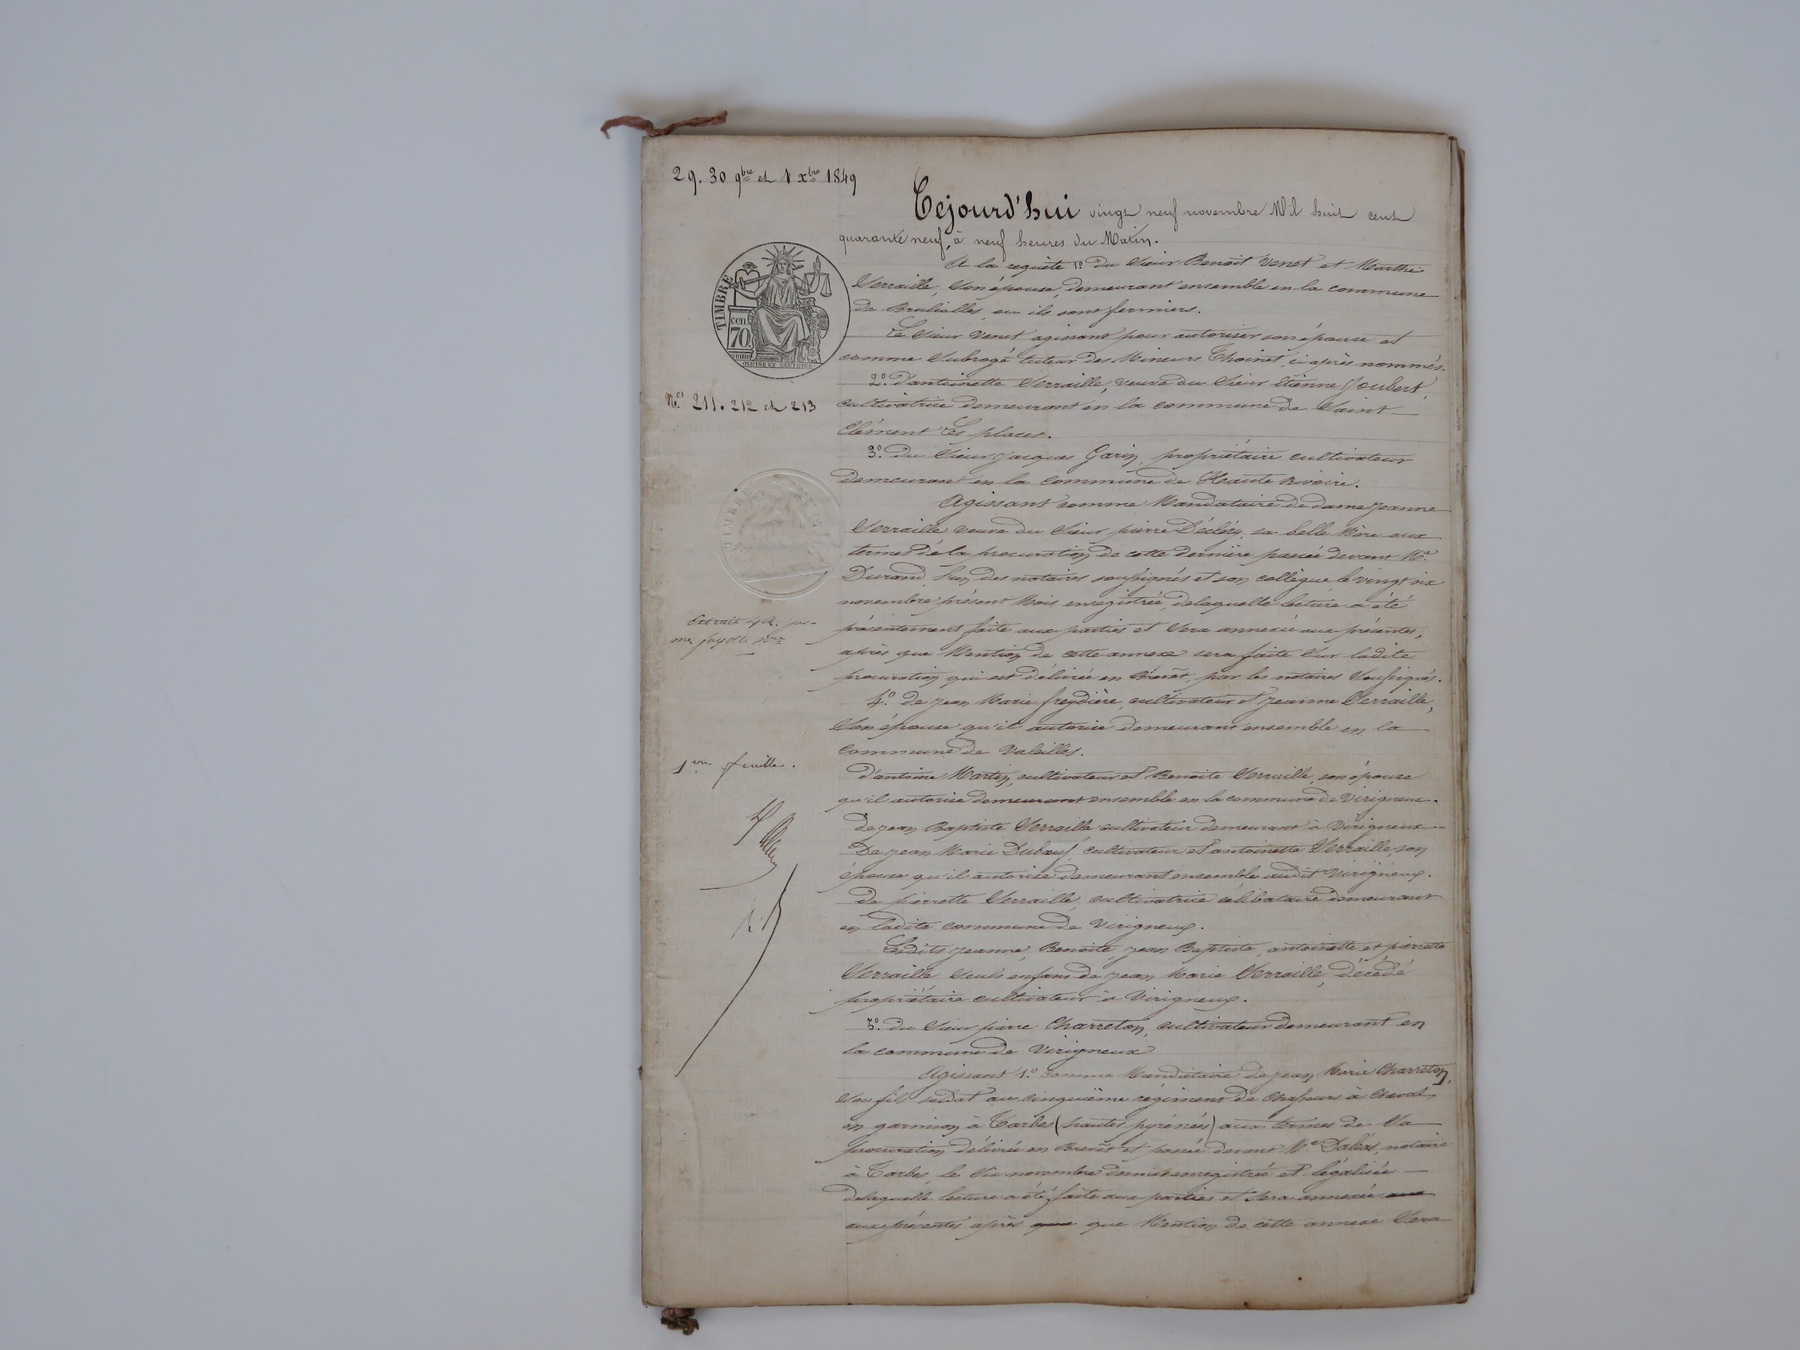 29. 30 9bre et 1 xbre 1849
Cejourd'hui vingt neuf novembre Mil huit cent
quarante neuf, à neuf heures du Matin.
TIMBRE
cen.
70
A la requête 1º du Sieur Benoît Venet et Marthe
Verraille, Son épouse, demeurant ensemble en la commune
de Brulioles, où ils sont fermiers.
Le Sieur Venet agissant pour autoriser son épouse et
comme Subrogé tuteur des Mineurs Thoinet, ci après nommés.
2º d'antoinette Verraille, veuve du Sieur Etienne Joubert,
Nos 211. 212 et 213
cultivatrice demeurant en la commune de Saint
Clément Les places.
3º du Sieur Jacques Garin, propriétaire cultivateur
demeurant en la commune de Haute Rivoire.
Agissant comme Mandataire de dame Jeanne
Verraille veuve du Sieur pierre, sa belle Mère aux
termes de la procuration de cette dernière passée devant Me
Durand, l'un des notaires soussignés et son collègue le vingt six
novembre présent Mois enregistrée, delaquelle lecture a été
présentement faite aux parties et Sera annexée aux présentes,
après que Mention de cette annexe sera faite Sur ladite
procuration qui est délivrée en Brevêt, par les notaires Soussignés.
4º de Jean Marie freydière, cultivateur et Jeanne Verraille,
Son épouse qu'il autorise demeurant ensemble en la
Commune de Valeilles.
1ere feuille.
d'antoine Martin, cultivateur et Benoite Verraille, son épouse
qu'il autorise demeurant ensemble en la commune de Virigneux.
de Jean Baptiste Verraille cultivateur demeurant à Virigneux
De Jean Marie Dubœuf, cultivateur et antoinette Verraille, son
épouse qu'il autorise demeurant ensemble audit Virigneux.
de pierrette Verraille, cultivatrice célibataire demeurant
en ladite commune de Virigneux.
Lesdits Jeanne, Benoite, Jean Baptiste, antoinette et pierrette
Verraille Seuls enfans de Jean Marie Verraille, décédé
propriétaire cultivateur à Virigneux.
5º du Sieur pierre Charreton, cultivateur demeurant en
la commune de Virigneux
Agissant 1º comme Mandataire de Jean Marie Charreton,
Son fils soldat au cinquième régiment de chasseurs à cheval,
en garnison à Tarbes (hautes pyrénées) aux termes de Sa
procuration délivrée en Brevêt et passée devant Me, notaire
à Tarbes, le Six novembre dernier enregistrée et légalisée
delaquelle lecture a été faite aux parties et Sera annexée aux
aux présentes après que que Mention de cette annexe Sera